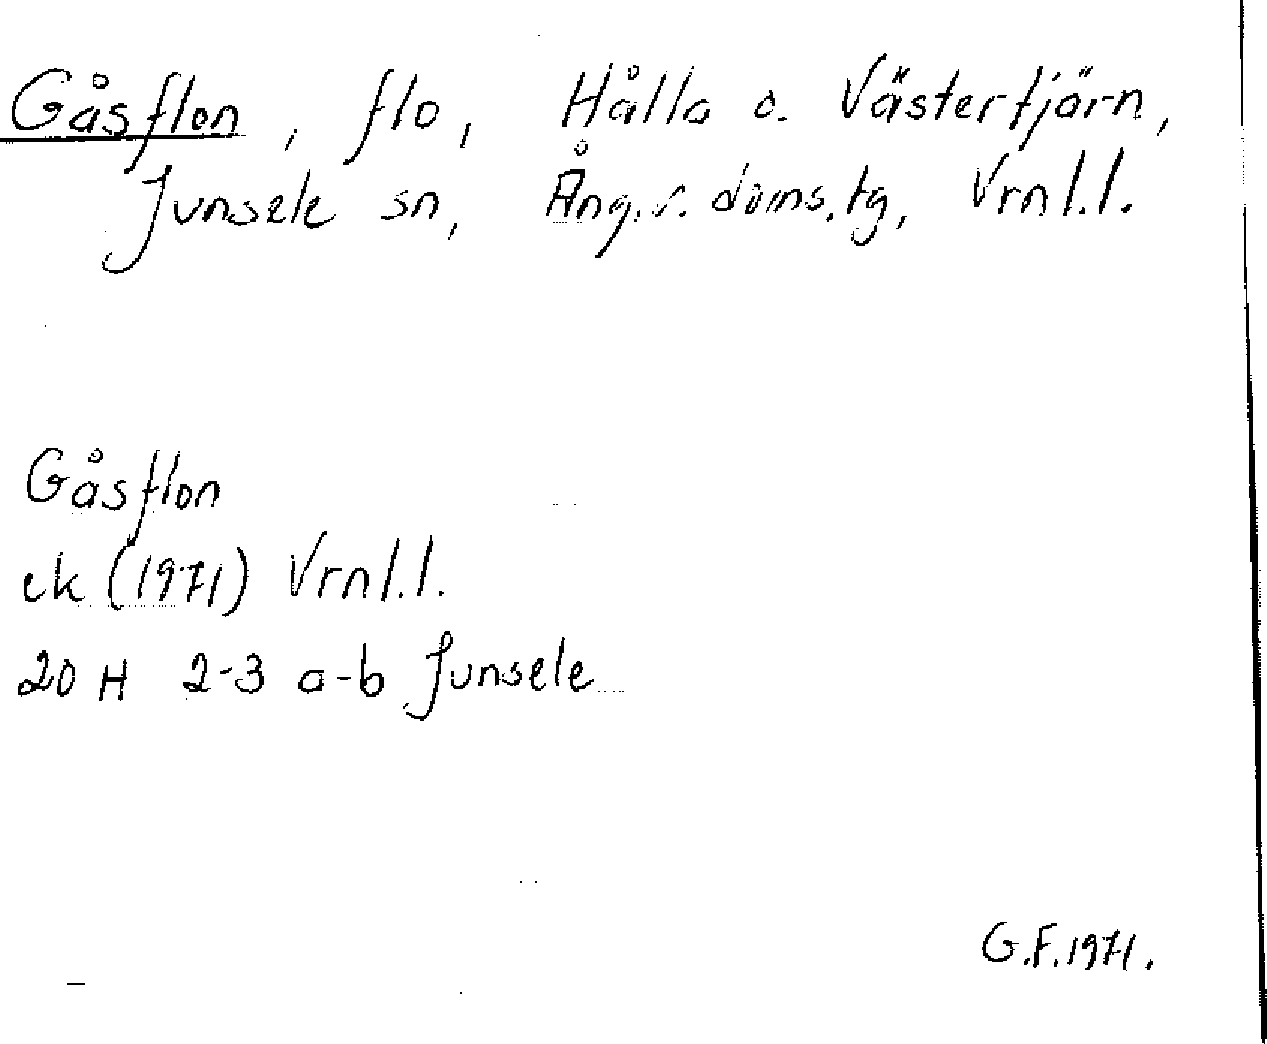 Gåsflon, flo, Hålla o. Västertjärn,
Junsele sn, Ång. s. doms.tg, Vrnl.l.
Gåsflon
ek (1971) Vrnl.l.
20 H 2-3 a-b Junsele
G.F.1971.